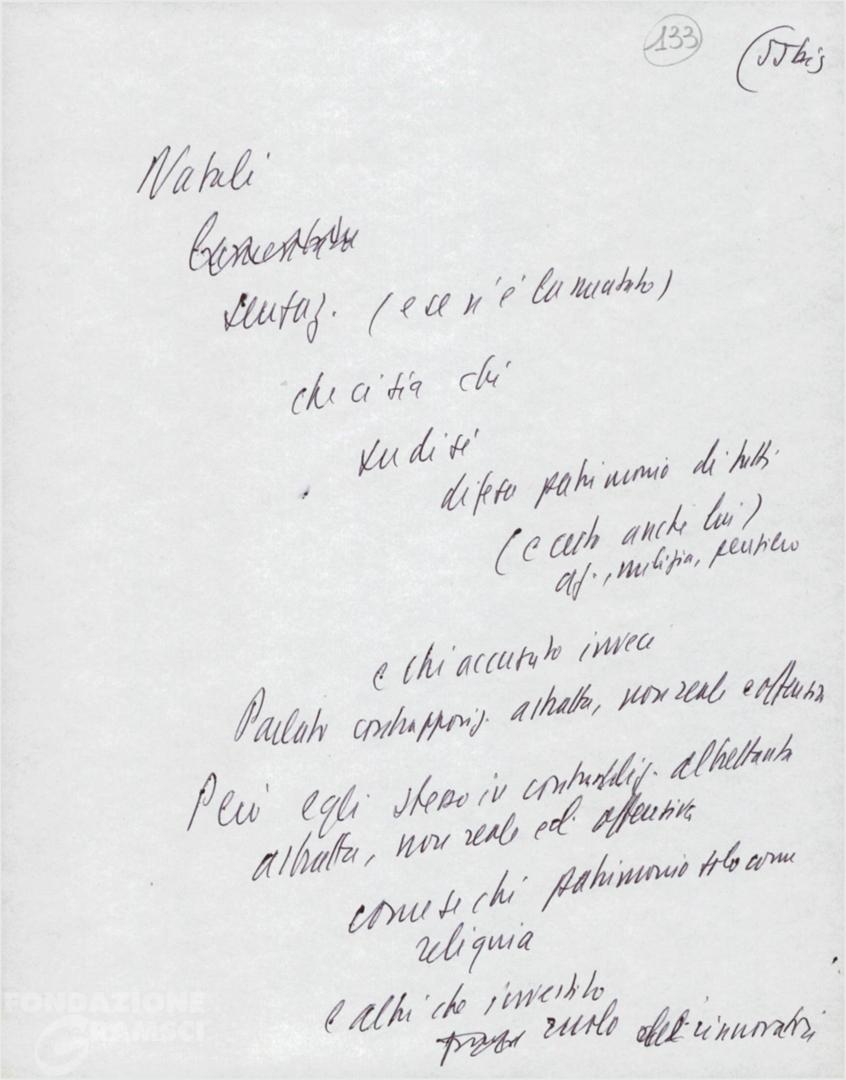 133
(55bis
Natali
sensaz. (e se n'è lamentato)
che ci sia chi
su di sé
difesa patrimonio di tutti
(e certo anche lui)
az., milizia, pensiero
e chi accusato invece
Parlato contrapposiz. astratta, non reale e offensiva
Però egli stesso in contraddiz. altrettanto
astratta, non reale ed offensiva
come se chi patrimonio solo come
reliquia
e altri che investito
ruolo innovatori
FONDAZIONE
GRAMSCI